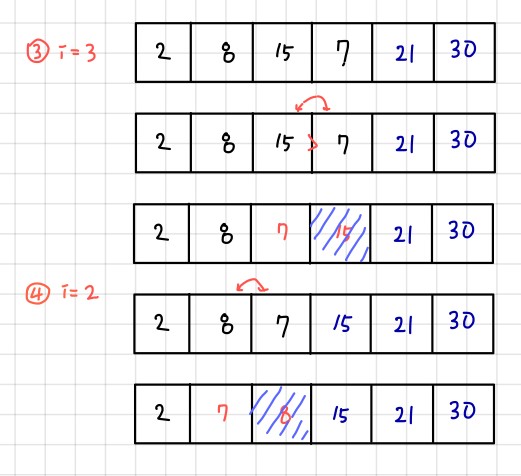 ③ i=3 2 8 15 7 21 30
2 8 15 > 7 21 30
2 8 7 15 21 30
④ i=2
2 8 7 15 21 30
2 7 8 15 21 30